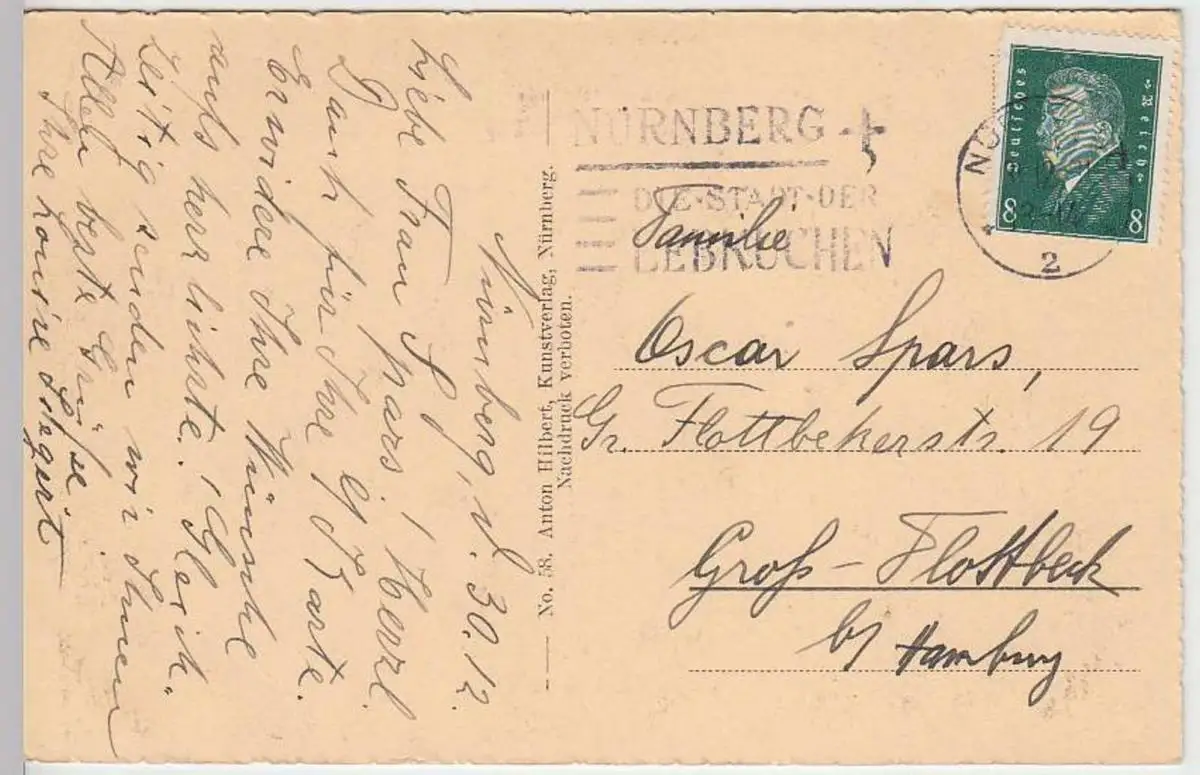 Nürnberg, d. 30.12.
Liebe Frau Spars! Herzl.
Dank für Ihre Karte.
Erwidere Ihre Wünsche
aufs herzlichste. Gleich-
zeitig senden wir Ihnen
Allen beste Grüsse
Ihre Louise
No. 58. Anton Hilbert, Kunstverlag, Nürnberg.
Nachdruck verboten.
NÜRNBERG
DIE·STADT·DER
LEBKUCHEN
NÜ
2
Deutsches Reich
8 8
Familie
Oscar Spars,
Gr. Flottbekerstr. 19
Groß-Flottbeck
b/ Hamburg